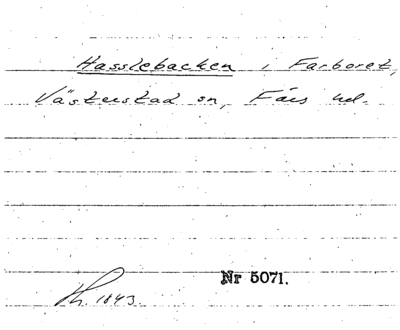 Hasslebacken i Farboret,
Västerstad sn, Färs hd.
Nr 5071.
Th. 1843.